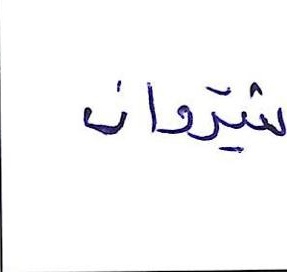 شێروان